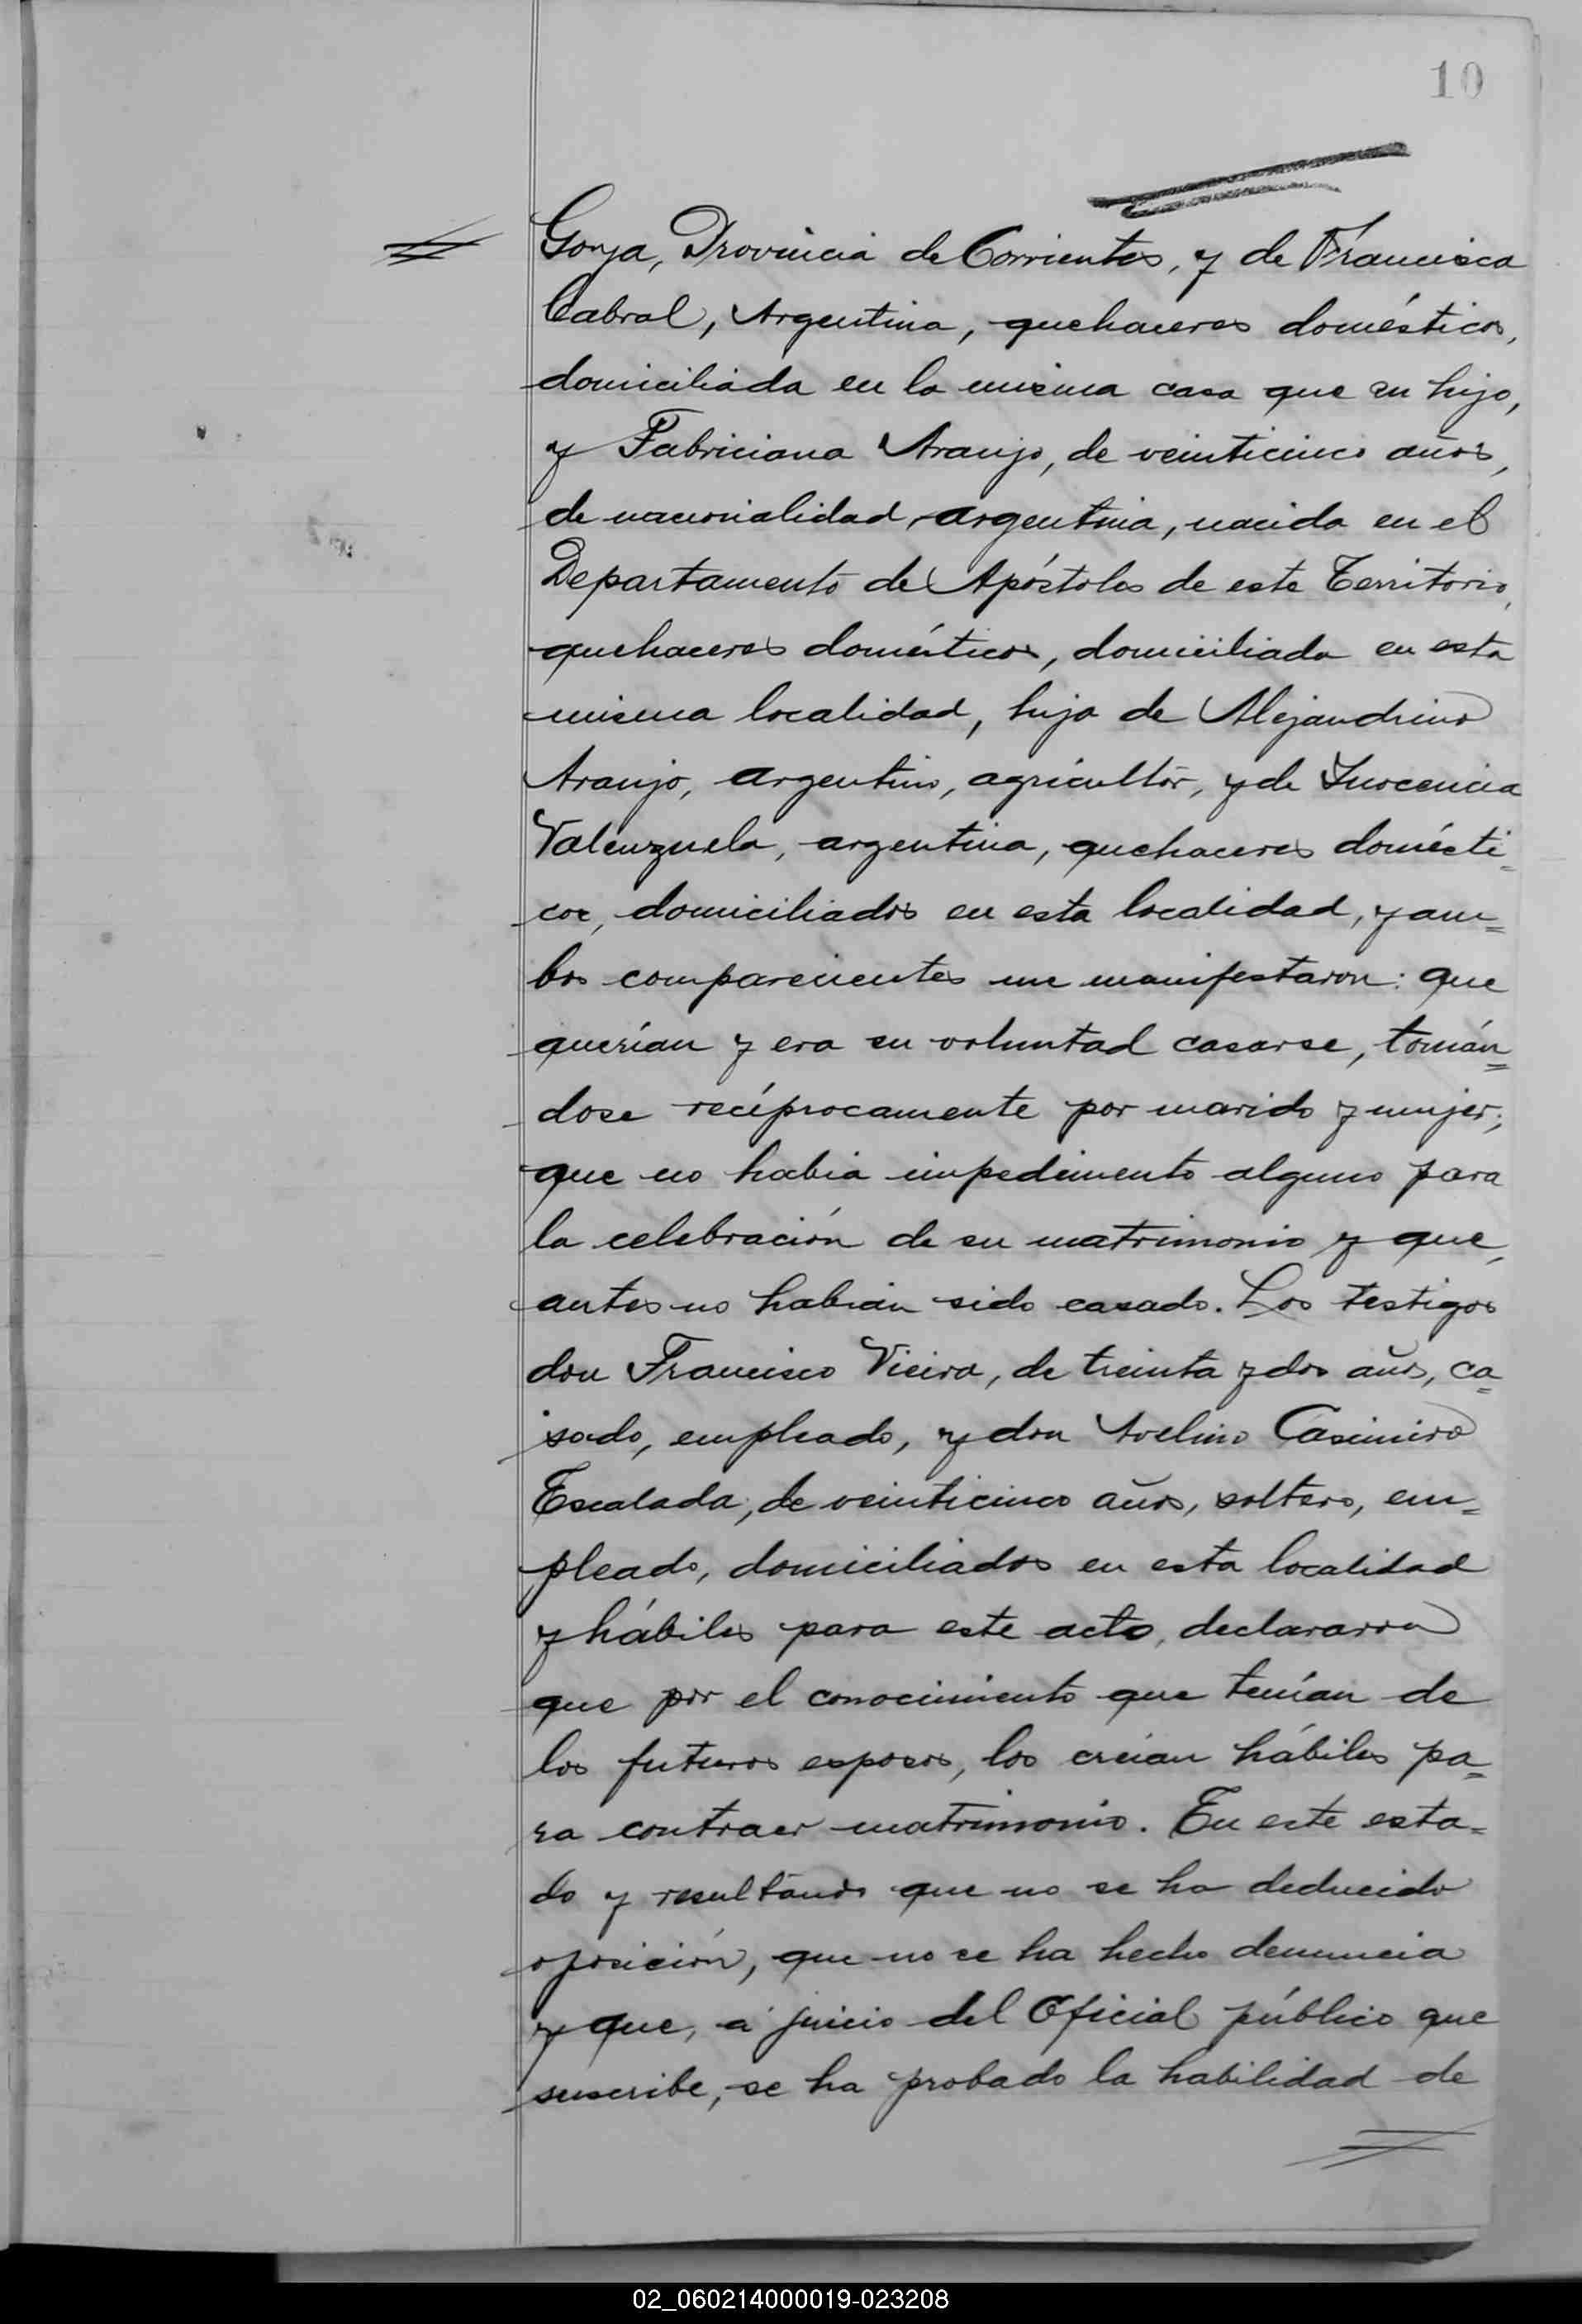 10
Goya, Provincia de Corrientes, y de Francisca
Cabral, Argentina, quehaceres domésticos,
domiciliada en la misma casa que su hijo,
y Fabriciana Araujo, de veinticinco años,
de nacionalidad argentina, nacida en el
Departamento de Apóstoles de este Territorio,
quehaceres domésticos, domiciliada en esta
misma localidad, hija de Alejandrino
Araujo, argentino, agricultor, y de Inocencia
Valenzuela, argentina, quehaceres domésti=
cos, domiciliados en esta localidad, y am=
bos comparecientes me manifestaron: que
querían y era su voluntad casarse, tomán=
dose recíprocamente por marido y mujer;
que no habia impedimento alguno para
la celebración de su matrimonio y que,
antes no habian sido casado. Los testigos
don Francisco Vieira, de treinta y dos años, ca=
sado, empleado, y don Avelino Casimiro
Escalada, de veinticinco años, soltero, em=
pleado, domiciliados en esta localidad
y hábiles para este acto, declararon
que por el conocimiento que tenían de
los futuros esposos, los creían hábiles pa=
ra contraer matrimonio. En este esta=
do y resultando que no se ha deducido
oposición, que no se ha hecho denuncia
y que, a juicio del Oficial público que
suscribe, se ha probado la habilidad de
02_060214000019-023208